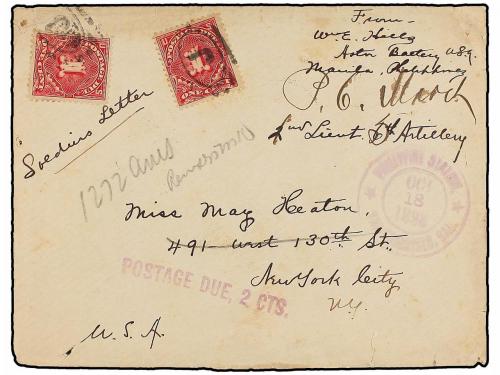 From-
Wm. E. Hills
Astor Battery U.S.A.
Manila, Philippines
P. C. March
2nd Lieut. 5th Artillery
Soldiers Letter
ONE CENT
1272 Ams
OCT
18
1898
Miss May Heaton,
491 west 130th St.
New York City
N.Y.
POSTAGE DUE, 2 CTS.
U.S.A.